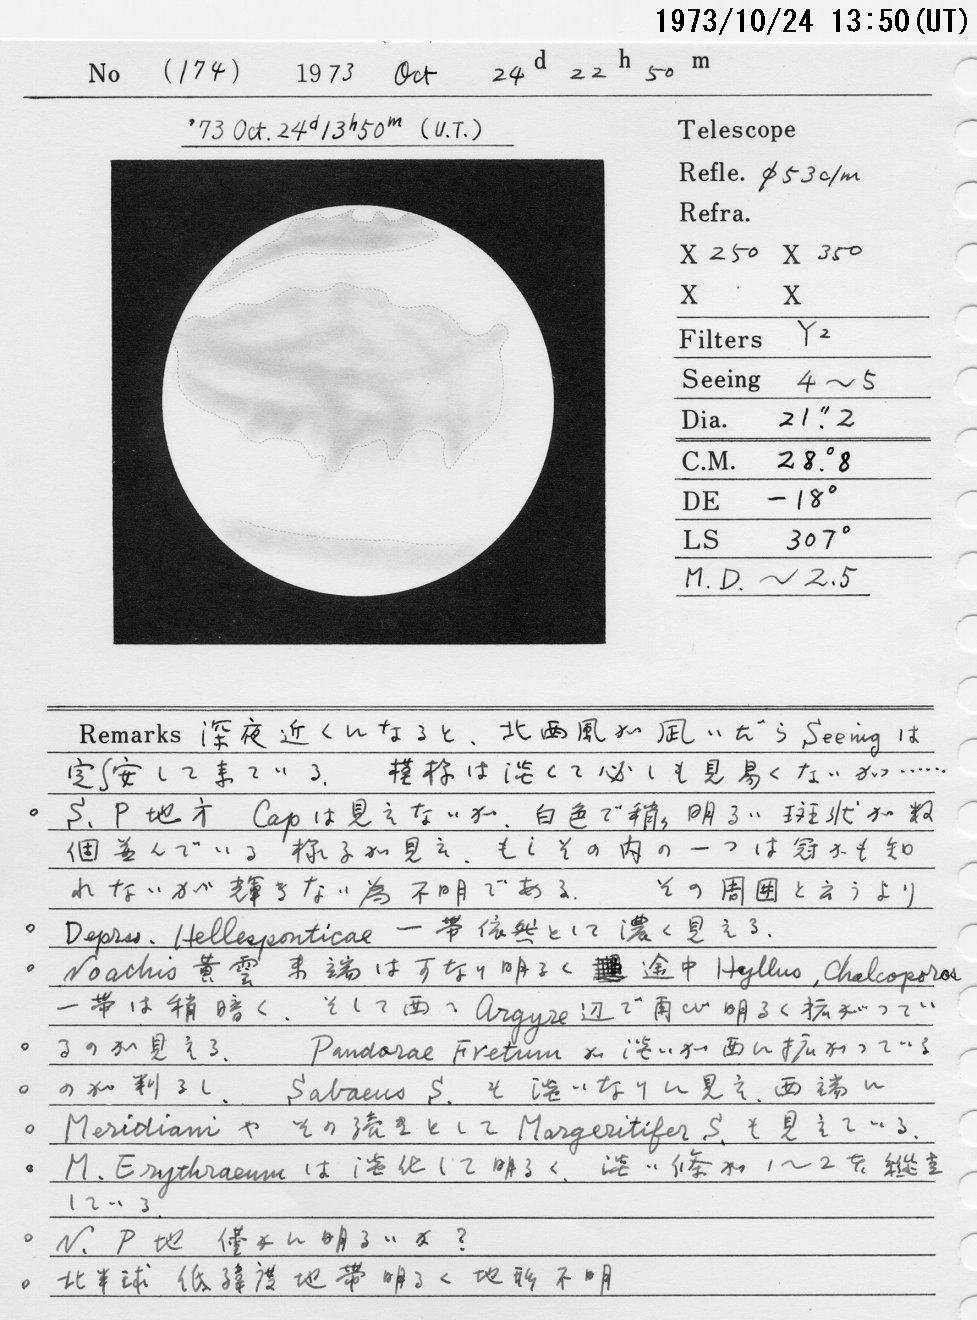 1973/10/24 13:50(UT)
No (174) 1973 Oct 24d 22h 50m
'73 Oct. 24d 13h 50m (U.T.)
Telescope
Refle. φ53c/m
Refra.
X 250 X 350
X X
Filters Y2
Seeing 4～5
Dia. 21".2
C.M. 28.°8
DE －18°
LS 307°
M.D. ～2.5
Remarks 深夜近くになると、北西風が凪いだらSeeingは
安定して来ている. 模様は淡くて必しも見易くないが……
○ S.P地方 Capは見えないが、白色で稍々明るい斑状が数
個並んでいる様子が見え、もしその内の一つは冠かも知
れないが輝きない為不明である. その周囲と云うより
○ Depress. Hellesponticae 一帯依然として濃く見える.
○ Noachis 黄雲 東端はかなり明るく 途中 Hyllus, Chalcoporos
一帯は稍暗く、そして西へArgyre辺で再び明るく拡がってい
○ るのが見える. Pandorae Fretumが淡いが西に拡がっている
○ のが判るし、Sabaeus S. も淡いなりに見え、西端に
○ Meridianiやその続きとしてMargeritifer S.も見えている.
○ M. Erythraeumは淡化して明るく、淡い條が1～2本縦走
している.
○ N.P地 僅かに明るいか?
○ 北半球 低緯度地帯明るく地形不明